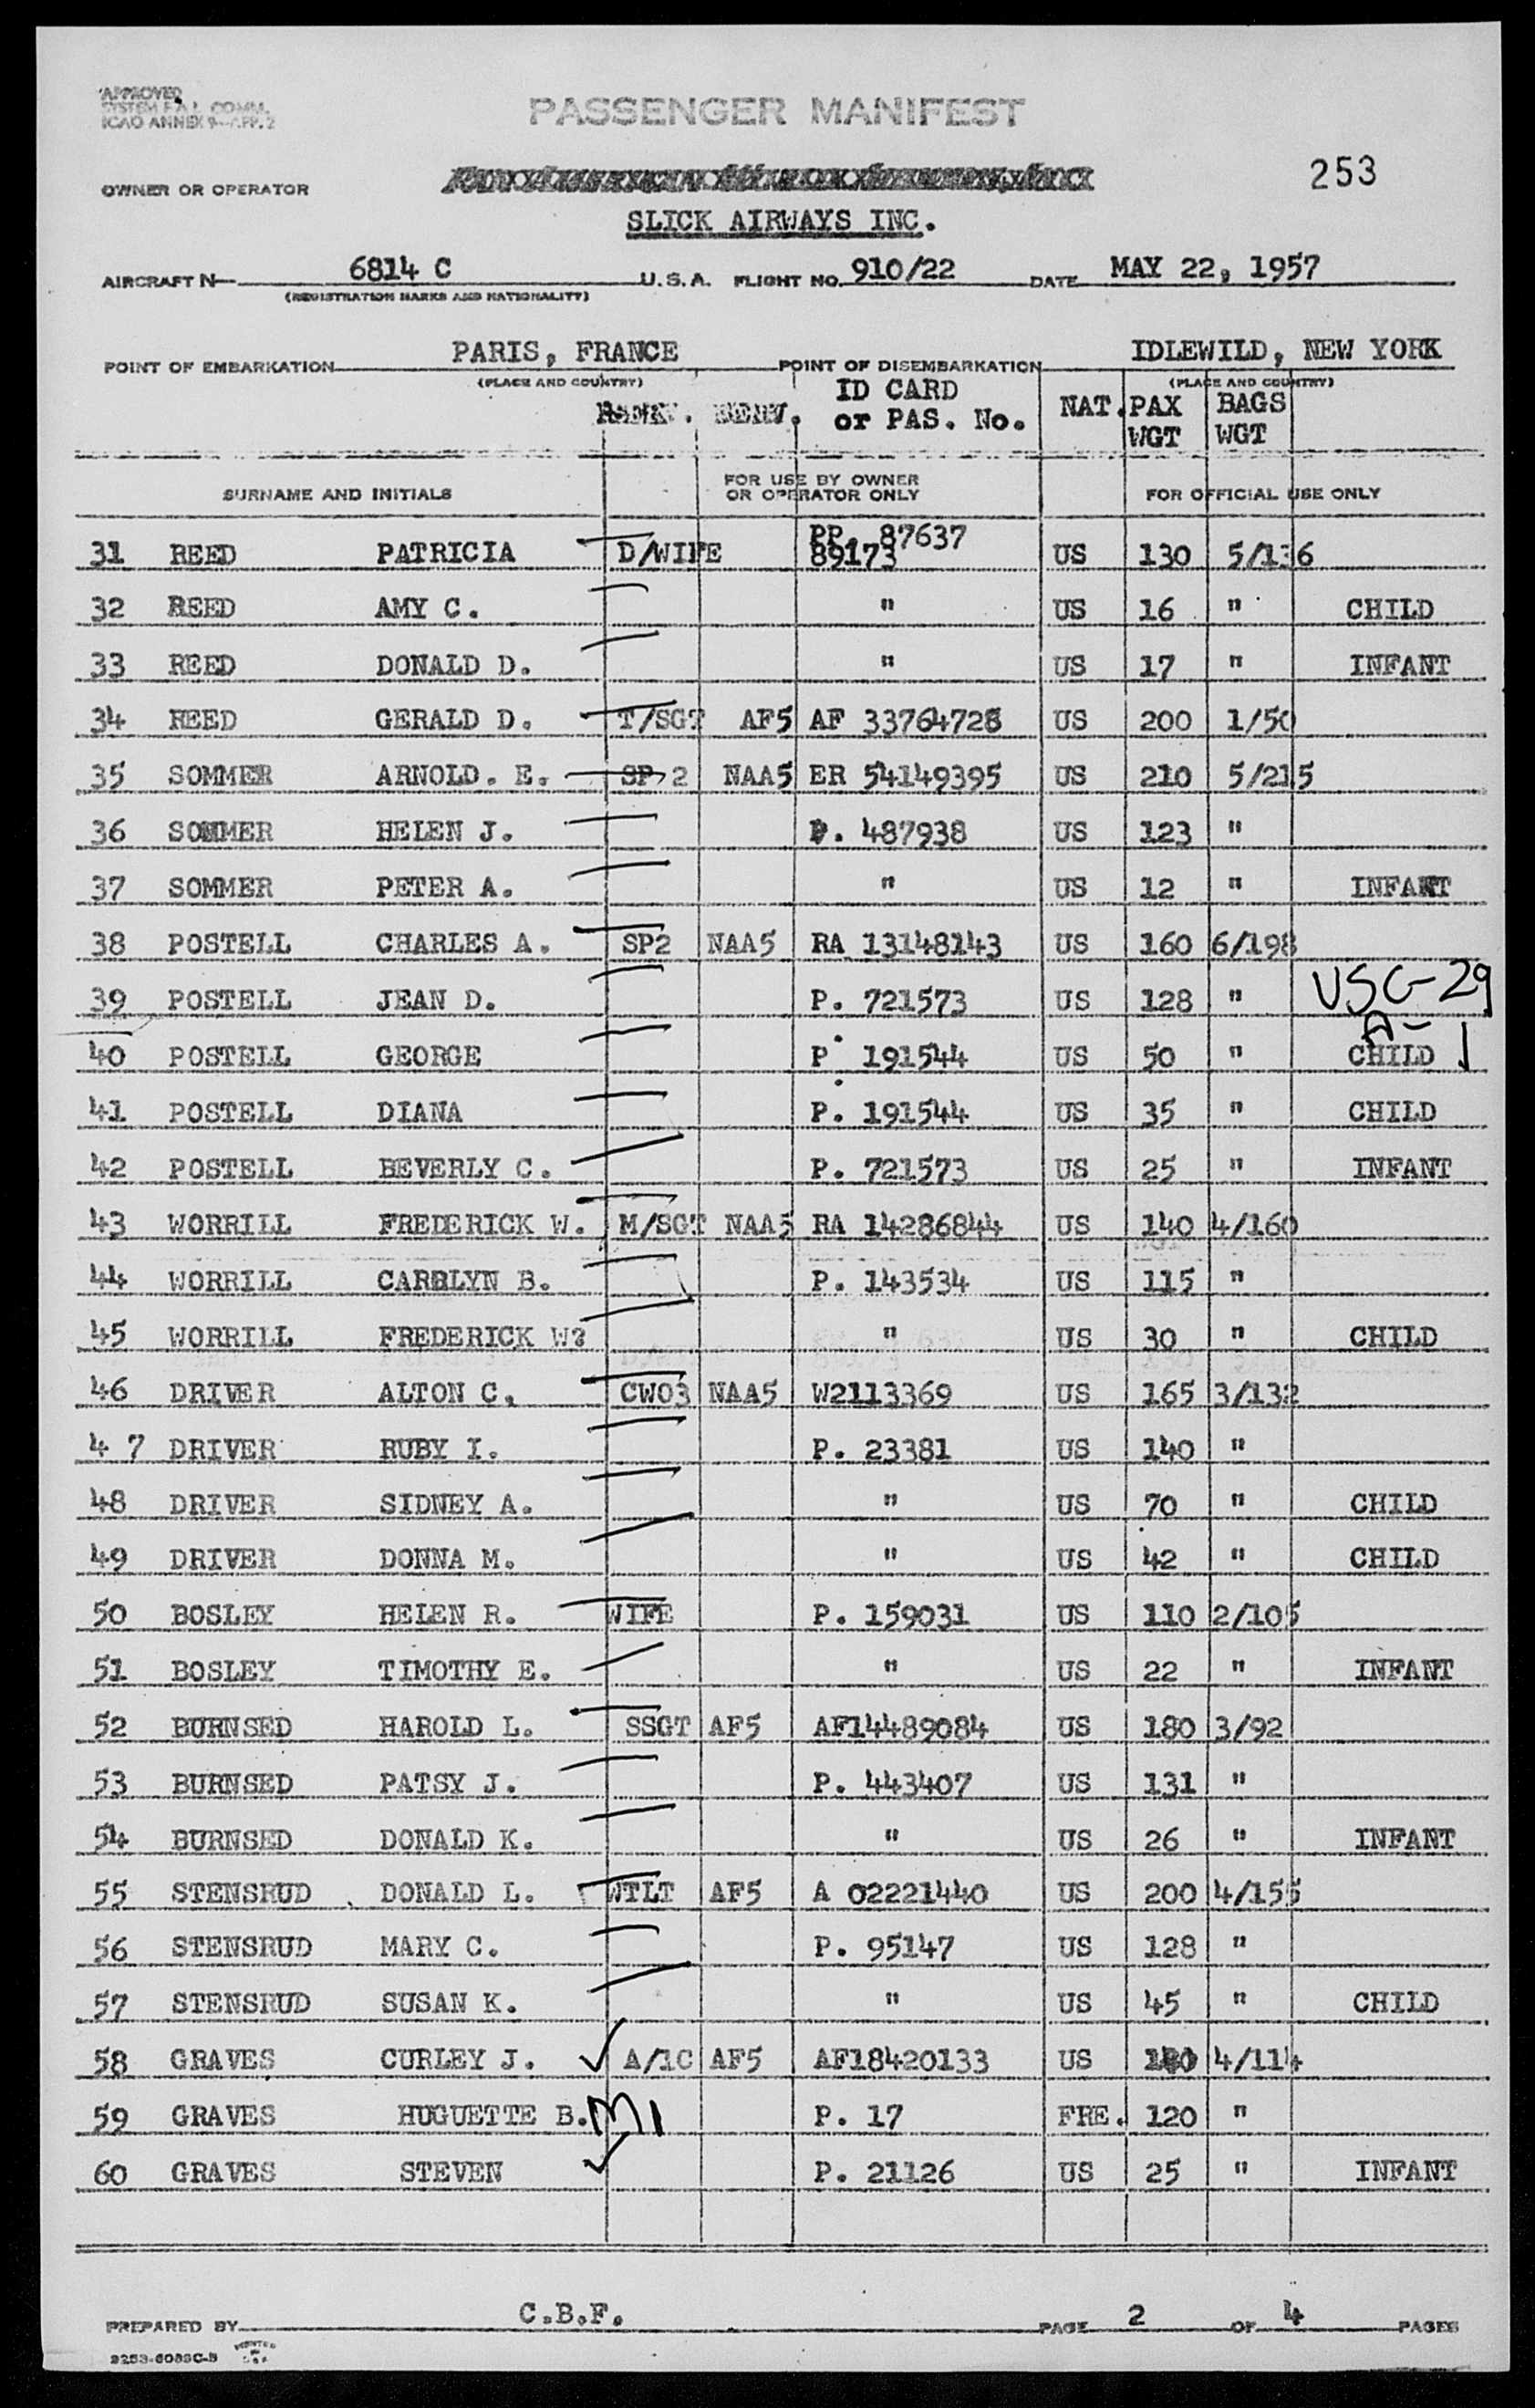 APPROVED
SYSTEM F.A.L. COMM.
ICAO ANNEX 9—APP. 2
PASSENGER MANIFEST
253
OWNER OR OPERATOR
SLICK AIRWAYS INC.
AIRCRAFT N— 6814 C U.S.A. FLIGHT NO. 910/22 DATE MAY 22, 1957
(REGISTRATION MARKS AND NATIONALITY)
POINT OF EMBARKATION PARIS, FRANCE POINT OF DISEMBARKATION IDLEWILD, NEW YORK
(PLACE AND COUNTRY) (PLACE AND COUNTRY)
RANK. SERV. ID CARD or PAS. No. NAT. PAX WGT BAGS WGT
SURNAME AND INITIALS FOR USE BY OWNER OR OPERATOR ONLY FOR OFFICIAL USE ONLY
31 REED PATRICIA D/WIFE PP. 87637 89173 US 130 5/136
32 REED AMY C. " US 16 " CHILD
33 REED DONALD D. " US 17 " INFANT
34 REED GERALD D. T/SGT AF5 AF 33764728 US 200 1/50
35 SOMMER ARNOLD. E. SP 2 NAA5 ER 54149395 US 210 5/215
36 SOMMER HELEN J. P. 487938 US 123 "
37 SOMMER PETER A. " US 12 " INFANT
38 POSTELL CHARLES A. SP2 NAA5 RA 13148143 US 160 6/198
39 POSTELL JEAN D. P. 721573 US 128 " USC-29
A- 1
40 POSTELL GEORGE P. 191544 US 50 " CHILD
41 POSTELL DIANA P. 191544 US 35 " CHILD
42 POSTELL BEVERLY C. P. 721573 US 25 " INFANT
43 WORRILL FREDERICK W. M/SGT NAA5 RA 14286844 US 140 4/160
44 WORRILL CAROLYN B. P. 143534 US 115 "
45 WORRILL FREDERICK W? " US 30 " CHILD
46 DRIVER ALTON C. CWO3 NAA5 W2113369 US 165 3/132
4 7 DRIVER RUBY I. P. 23381 US 140 "
48 DRIVER SIDNEY A. " US 70 " CHILD
49 DRIVER DONNA M. " US 42 " CHILD
50 BOSLEY HELEN R. WIFE P. 159031 US 110 2/105
51 BOSLEY TIMOTHY E. " US 22 " INFANT
52 BURNSED HAROLD L. SSGT AF5 AF14489084 US 180 3/92
53 BURNSED PATSY J. P. 443407 US 131 "
54 BURNSED DONALD K. " US 26 " INFANT
55 STENSRUD DONALD L. WTLT AF5 A 02221440 US 200 4/155
56 STENSRUD MARY C. P. 95147 US 128 "
57 STENSRUD SUSAN K. " US 45 " CHILD
58 GRAVES CURLEY J. A/1C AF5 AF18420133 US 4/114
59 GRAVES HUGUETTE B. M1 P. 17 FRE. 120 "
60 GRAVES STEVEN P. 21126 US 25 " INFANT
PREPARED BY C.B.F. PAGE 2 OF 4 PAGES